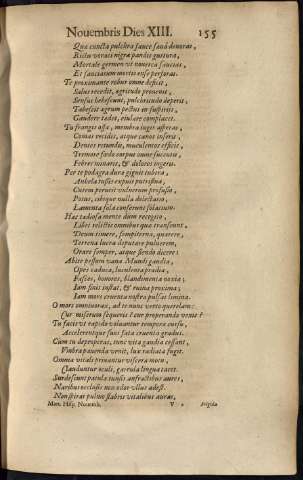 Nouembris Dies XIII. 155
Quæ cuncta pulchra fauce sæuâ deuoras,
Rictu voraci nigra pandis guttura,
Mortale germen vt nouerca saucias,
Et sauciatum mortis ense perforas.
Te proximante robur omne deficit,
Salus recedit, ægritudo prouenit,
Sensus hebescunt, pulchritudo deperit,
Tabescit ægrum pectus ac suspiriis,
Gaudere tædet, eiulare complacet.
Tu frangis ossa, membra iungis asperas,
Comas recidis, atque canos inseris,
Dentes retundis, muculentos efficis,
Tremore fœdo corpus omne succutis,
Febres minaris, & dolores ingeris.
Per te podagra dura gignit tubera,
Anhela tussis expuit putrissima,
Cutem perurit vulnerum prosusio,
Potus, cibique nulla delectatio,
Lamenta sola conferunt solatium.
Hæc tædiosa mente dum recogito,
Libet relictis omnibus quæ transeunt,
Deum timere, sempiterna, quærere,
Terrena lucra deputare puluerem,
Orare semper, atque flendo dicere:
Abite pessum vana Mundi gaudia,
Opes caducæ, luculenta prædia,
Fasces, honores, blandimenta noxia;
Iam finis instat, & ruina proxima;
Iam mors cruenta nostra pulsat limina.
O mors omniuorax, ad te nunc verto querelam:
Cur miserum sequeris? cur properando venis?
Tu facis vt rapido voluantur tempora cursu,
Accelerentque sui fata cruenta gradus.
Cùm tu depropéras, tunc vitæ gaudia cessant,
Vmbra pauenda venit, lux radiata fugit.
Omnia vitali priuantur viscera motu,
Clauduntur oculi, garrula lingua tacet.
Surdescunt patulæ tensis anfractibus aures,
Naribus occlusis non odor vllus adest.
Non spirat pulmo flabris vitalibus auras,
Mart. Hisp. Nouemb. V 2 Frigida